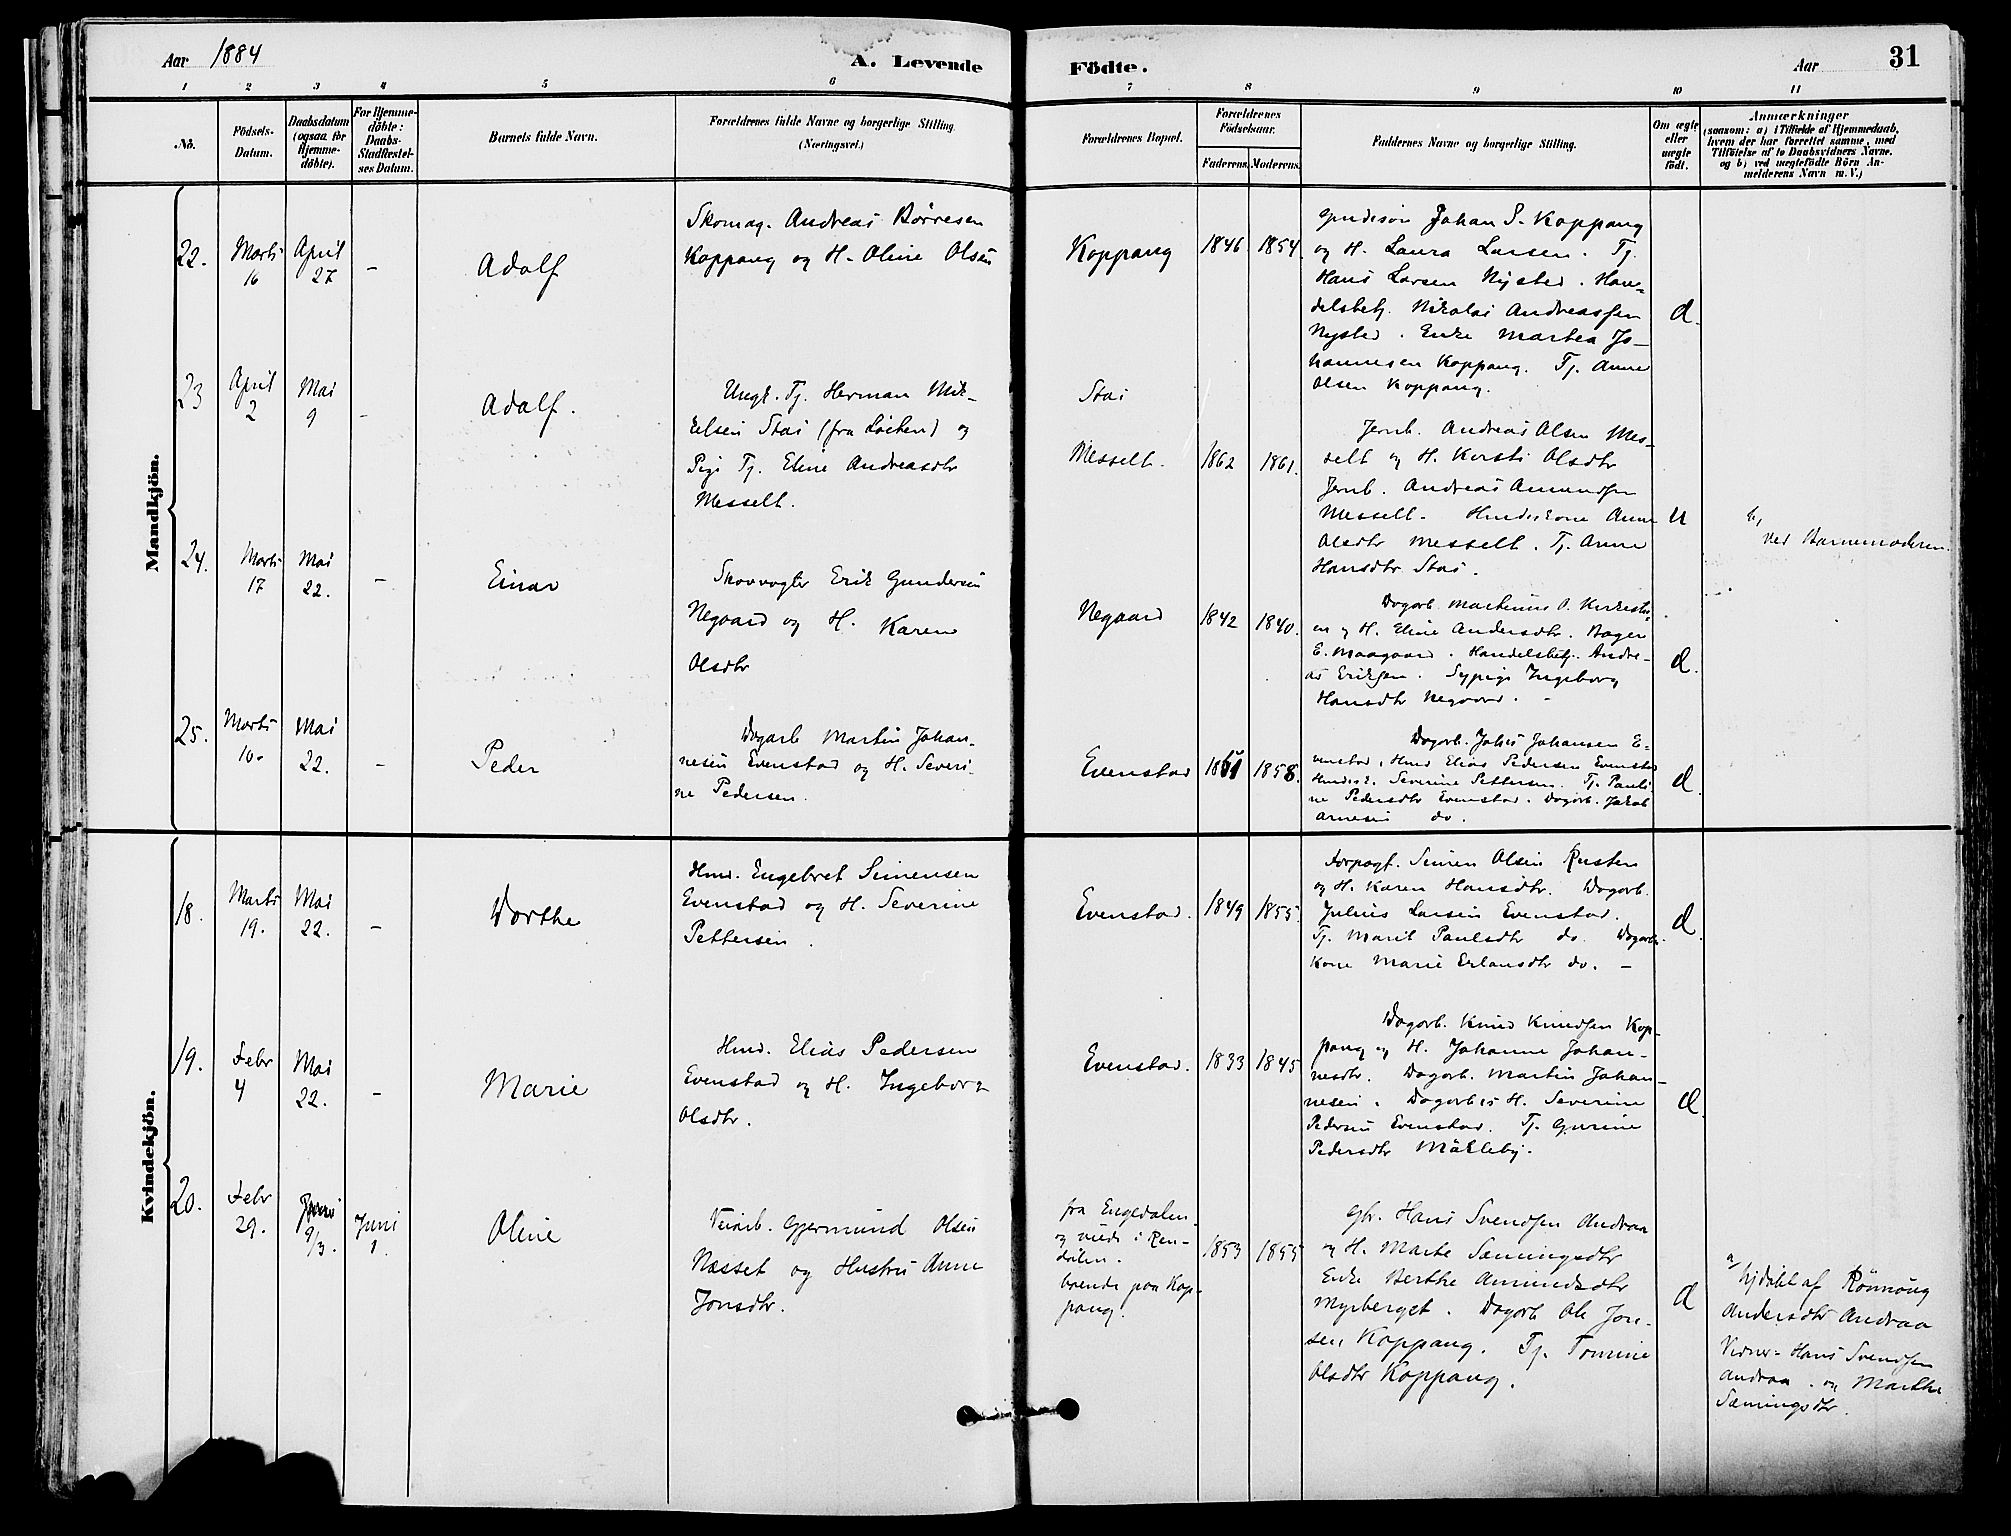 Aar 1884
A. Levende
Födte.
Aar
31
1 2 3 4 5 6 7 8 9 10 11
No.
Födsels-
Datum.
Daabsdatum
(ogsaa for
Hjemme-
döbte).
For Hjemme-
döbte:
Daabs-
Stadfæstel-
ses Datum.
Barnets fulde Navn.
Forældrenes fulde Navne og borgerlige Stilling
(Næringsvei.)
Forældrenes Bopæl.
Forældrenes
Födselsaar.
Faderens. Moderens.
Faddernes Navne og borgerlige Stilling.
Om ægte
eller
uægte
født.
Anmærkninger
(saasom: a) i Tilfælde af Hjemmedaab,
hvem der har forrettet samme, med
Tilföielse af to Daabsvidners Navne,
og b) ved uægtefødte Börn An-
melderens Navn m. V.)
Mandkjön.
22.
Marts
16
April
27
–
Adolf
Skomag. Andreas Børresen
Koppang og H. Oline Olsen
Koppang
1846 1854.
Johan S. Koppang
og H. Laura Larsen. Tj.
Hans Larsen Nysted. Han-
delsbetj. Nikolai Andreassen
Nysted. Enke Marthea Jo-
hannesen Koppang. Tj. Anne
Olsen Koppang.
d.
23
April
2
Mai
9
–
Adolf.
Ungk. Tj. Herman Mik-
kelsen Stai (fra Løiten) og
Pige Tj. Eline Andreasdtr
Messelt.
Stai
Messelt.
1862 1861.
Jernb. Andreas Olsen Mes-
selt og H. Kersti Olsdtr
Jernb. Andreas Amundsen
Messelt. Huuskone Anne
Olsdtr Messelt. Tj. Anne
Hansdtr Stai.
u
b,
ved Barnemoderen.
24.
Marts
17
Mai
22.
–
Einar
Skovvogter Erik Gundersen
Negaard og H. Karen
Olsdtr
Negaard
1842 1840.
Dagarb. Martinus O. Kirkestu-
en og H. Eline Andersdtr. Bager
E. Maagaard. Handelsbetj. Andre-
as Eriksen. Sypige Ingeborg
Hansdtr Negaard. –
d.
25.
Marts
10.
Mai
22.
–
Peder
Dagarb Martin Johan-
nesen Evenstad og H. Severi-
ne Pedersen.
Evenstad
1858.
Dagarb. Johs Johansen E-
venstad, Hmd Elias Pedersen Evenstad
Severine Pettersen. Tj. Pauli-
ne Pedersdtr Evenstad. Dagarb. Jakob
Arnesen do.
d.
Kvindekjön.
18.
Marts
19.
Mai
22.
–
Dorthe
Hmd. Engebret Simensen
Evenstad og H. Severine
Pettersen.
Evenstad.
1849 1855.
Forpagt. Simen Olsen Rusten
og H. Karen Hansdtr. Dagarb.
Julius Larsen Evenstad.
Tj. Marit Paulsdtr do. Dagarb.
Kone Marie Erlandsdtr do. –
d.
19.
Febr
4
Mai
22.
–
Marie
Hmd. Elias Pedersen
Evenstad og H. Ingeborg
Olsdtr.
Evenstad.
1833 1845
Dagarb. Knud Knudsen Kop-
pang og H. Johanne Johan-
nesdtr. Dagarb. Martin Johan-
nesen. Dagarb.s H. Severine
Pedersen Evenstad. Tj. Gurine
Pedersdtr Mökleby.
d.
20.
Febr
29.
9/3.
Juni
1.
Oline
Veiarb. Gjermund Olsen
Næsset og Hustru Anne
Jonsdtr.
fra Engerdalen
og viede i Ren-
dalen.
boende paa Kop-
pang.
1853 1855
Gbr. Hans Svendsen Andraa
og H. Marte Sæmingsdtr
Enke Berthe Amundsdtr
Myrberget. Dagarb Ole Jon-
sen, Koppang. Tj. Tomine
Olsdtr Koppang.
d
a,
hjdøbt af Rönnoug
Andersdtr Andraa
Vidner- Hans Svendsen
Andraa. og Marthe
Sæmingsdtr.